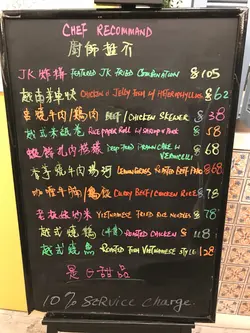 CHEF RECOMMAND
廚師推介
JK 炸拼 FEATURED JK FRIED COMBINATION $105
CHICKEN & JELLY FISH W/ HETEROPHYLLOS $62
串燒牛肉/雞肉 BEEF/CHICKEN SKEWER $38
越式米紙卷 RICE PAPER ROLL W/ SHRIMP & PORK $58
DEEP FRIED PRAWN CAKE W/ VERMICELLI $68
香茅燒牛肉撈河 LEMONGRASS ROASTED BEEF PHO $68
咖喱牛腩/雞飯 CURRY BEEF/CHICKEN RICE $78
炒米 VIETNAMESE FRIED RICE NOODLES $78
越式燒雞 (半隻) ROASTED CHICKEN $118
越式燒魚 ROASTED FISH VIETNAMESE STYLE $128
是日甜品
10% SERVICE CHARGE